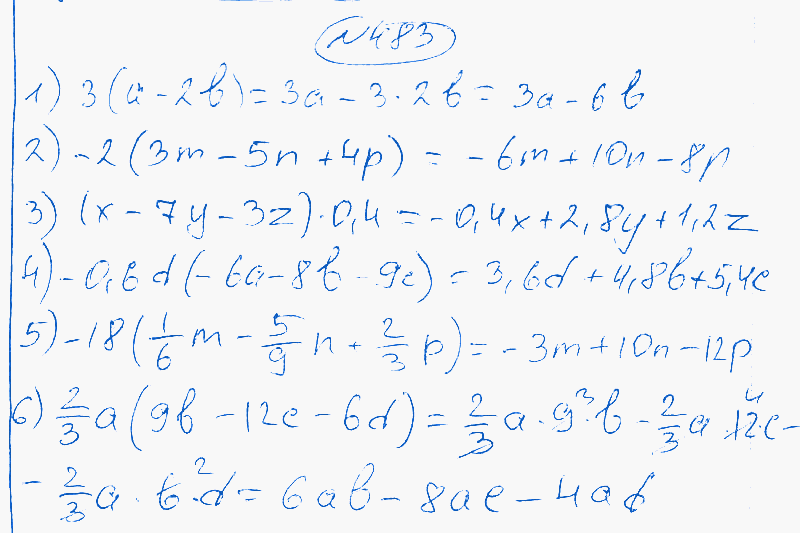 №483
1) 3(a - 2b) = 3a - 3·2b = 3a - 6b
2) -2(3m - 5n + 4p) = -6m + 10n - 8p
3) (x - 7y - 3z)·0,4 = -0,4x + 2,8y + 1,2z
4) -0,6d(-6a - 8b - 9c) = 3,6d + 4,8b + 5,4c
5) -18(1/6 m - 5/9 n + 2/3 p) = -3m + 10n - 12p
6) 2/3 a(9b - 12c - 6d) = 2/3 a · 9³·b - 2/3 a · 12⁴c -
- 2/3 a · 6²·d = 6ab - 8ac - 4ad